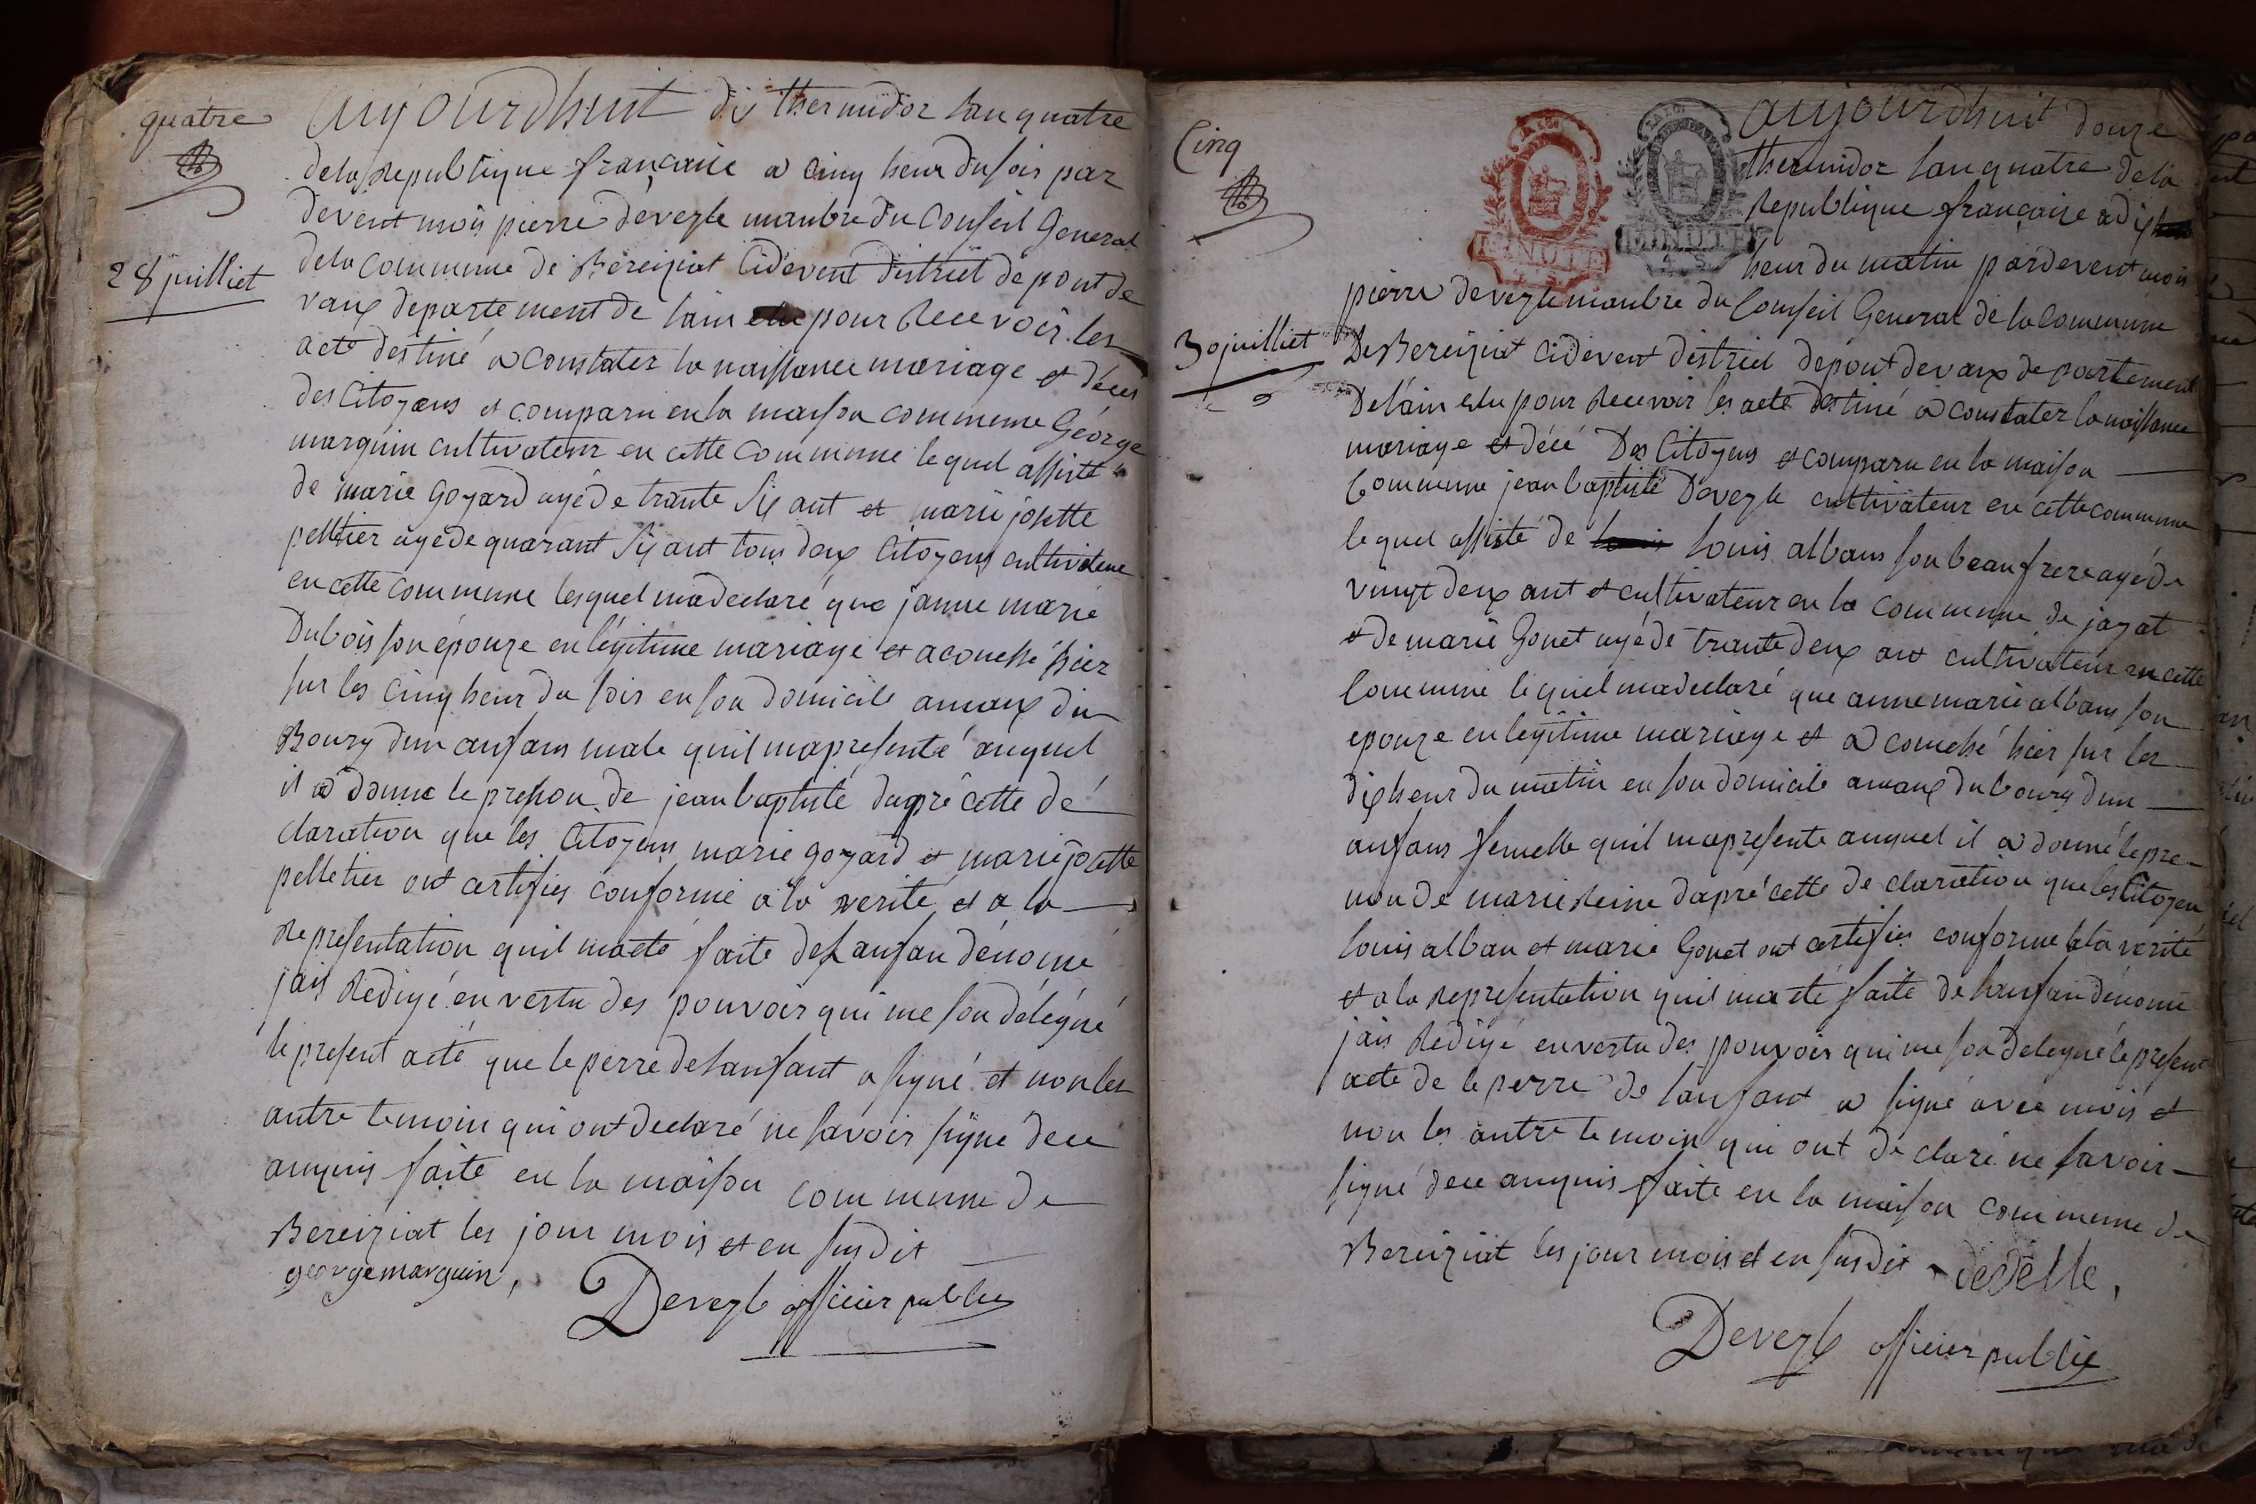 quatre
28 juilliet
aujourdhuit dix thermidor lan quatre
de la Republique française a cinq heur du soir par
devent mois pierre deveyle manbre du Conseil General
de la commune de Béréiziat cidevent district de pont de
vaux departement de lain elu pour Recevoir les
acte destiné a constater la naissance mariage et décés
des Citoyens et comparu en la maison commune George
marguin cultivateur en cette commune lequel assisté
de marie goyard agé de trante six ant et marie josette
pelletier agé de quarant six ant tous deux Citoyens cultivateur
en cette commune lesquel ma declaré que janne marie
Dubois son épouze en légitime mariage et acouché hier
sur les cinq heur du soir en son domicile amaux du
Bourg dun anfans male quil ma presenté auquel
il a donné le prenon de jean baptiste dapré cette dé
claration que les Citoyens marie goyard et marie josette
pelletier ont certifies conforme a la verité et a la
Representation quil ma eté faite de lanfan dénomé
jais Redigé en vertu des pouvoir qui me son délégué
le present acte que le perre de lanfant a signé et non les
autre temoin qui ont declaré ne savoir signé de ce
anquis faite en la maison commune de
Bereiziat les jour mois et en susdit
george marguin,
Deveyle officier public
Cinq
30 juilliet
MINUTE
MINUTE
aujourdhuit douze
thermidor lan quatre de la
Republique française a dix
heur du matin pardevent mois
pierre deveyle manbre du Conseil General de la commune
De Bereiziat cidevent district de pont devaux departement
De lain elu pour Recevoir les acte destiné a constater la naissance
mariage et décé Des Citoyens et comparu en la maison
Commune jean baptiste Deveyle cultivateur en cette commune
lequel assisté de louis albans son beau frere agé de
vingt deux ant et cultivateur en la commune de jayat
et de marie Gonet agé de trante deux ant cultivateur en cette
Commune lequel ma declaré que anne marie albans son
epouze en légitime mariage et a couché hier sur les
dix heur du matin en son domicile amaux du bourg dun
anfans femelle quil ma presente auquel il a donné le pre-
non de marie Reine dapré cette declaration que les Citoyen
louis alban et marie Gonet ont certifies conforme a la verité
et a la Representation quil ma eté faite de lanfan dénomé
jais Redigé en vertu des pouvoir qui me son delegué le present
acte de le perre de lanfant a signé avec mois et
non les autre temoin qui ont déclaré ne savoir
signé de ce anquis faite en la maison commune de
Bereiziat les jour mois et en susdit
Deveyle officier public